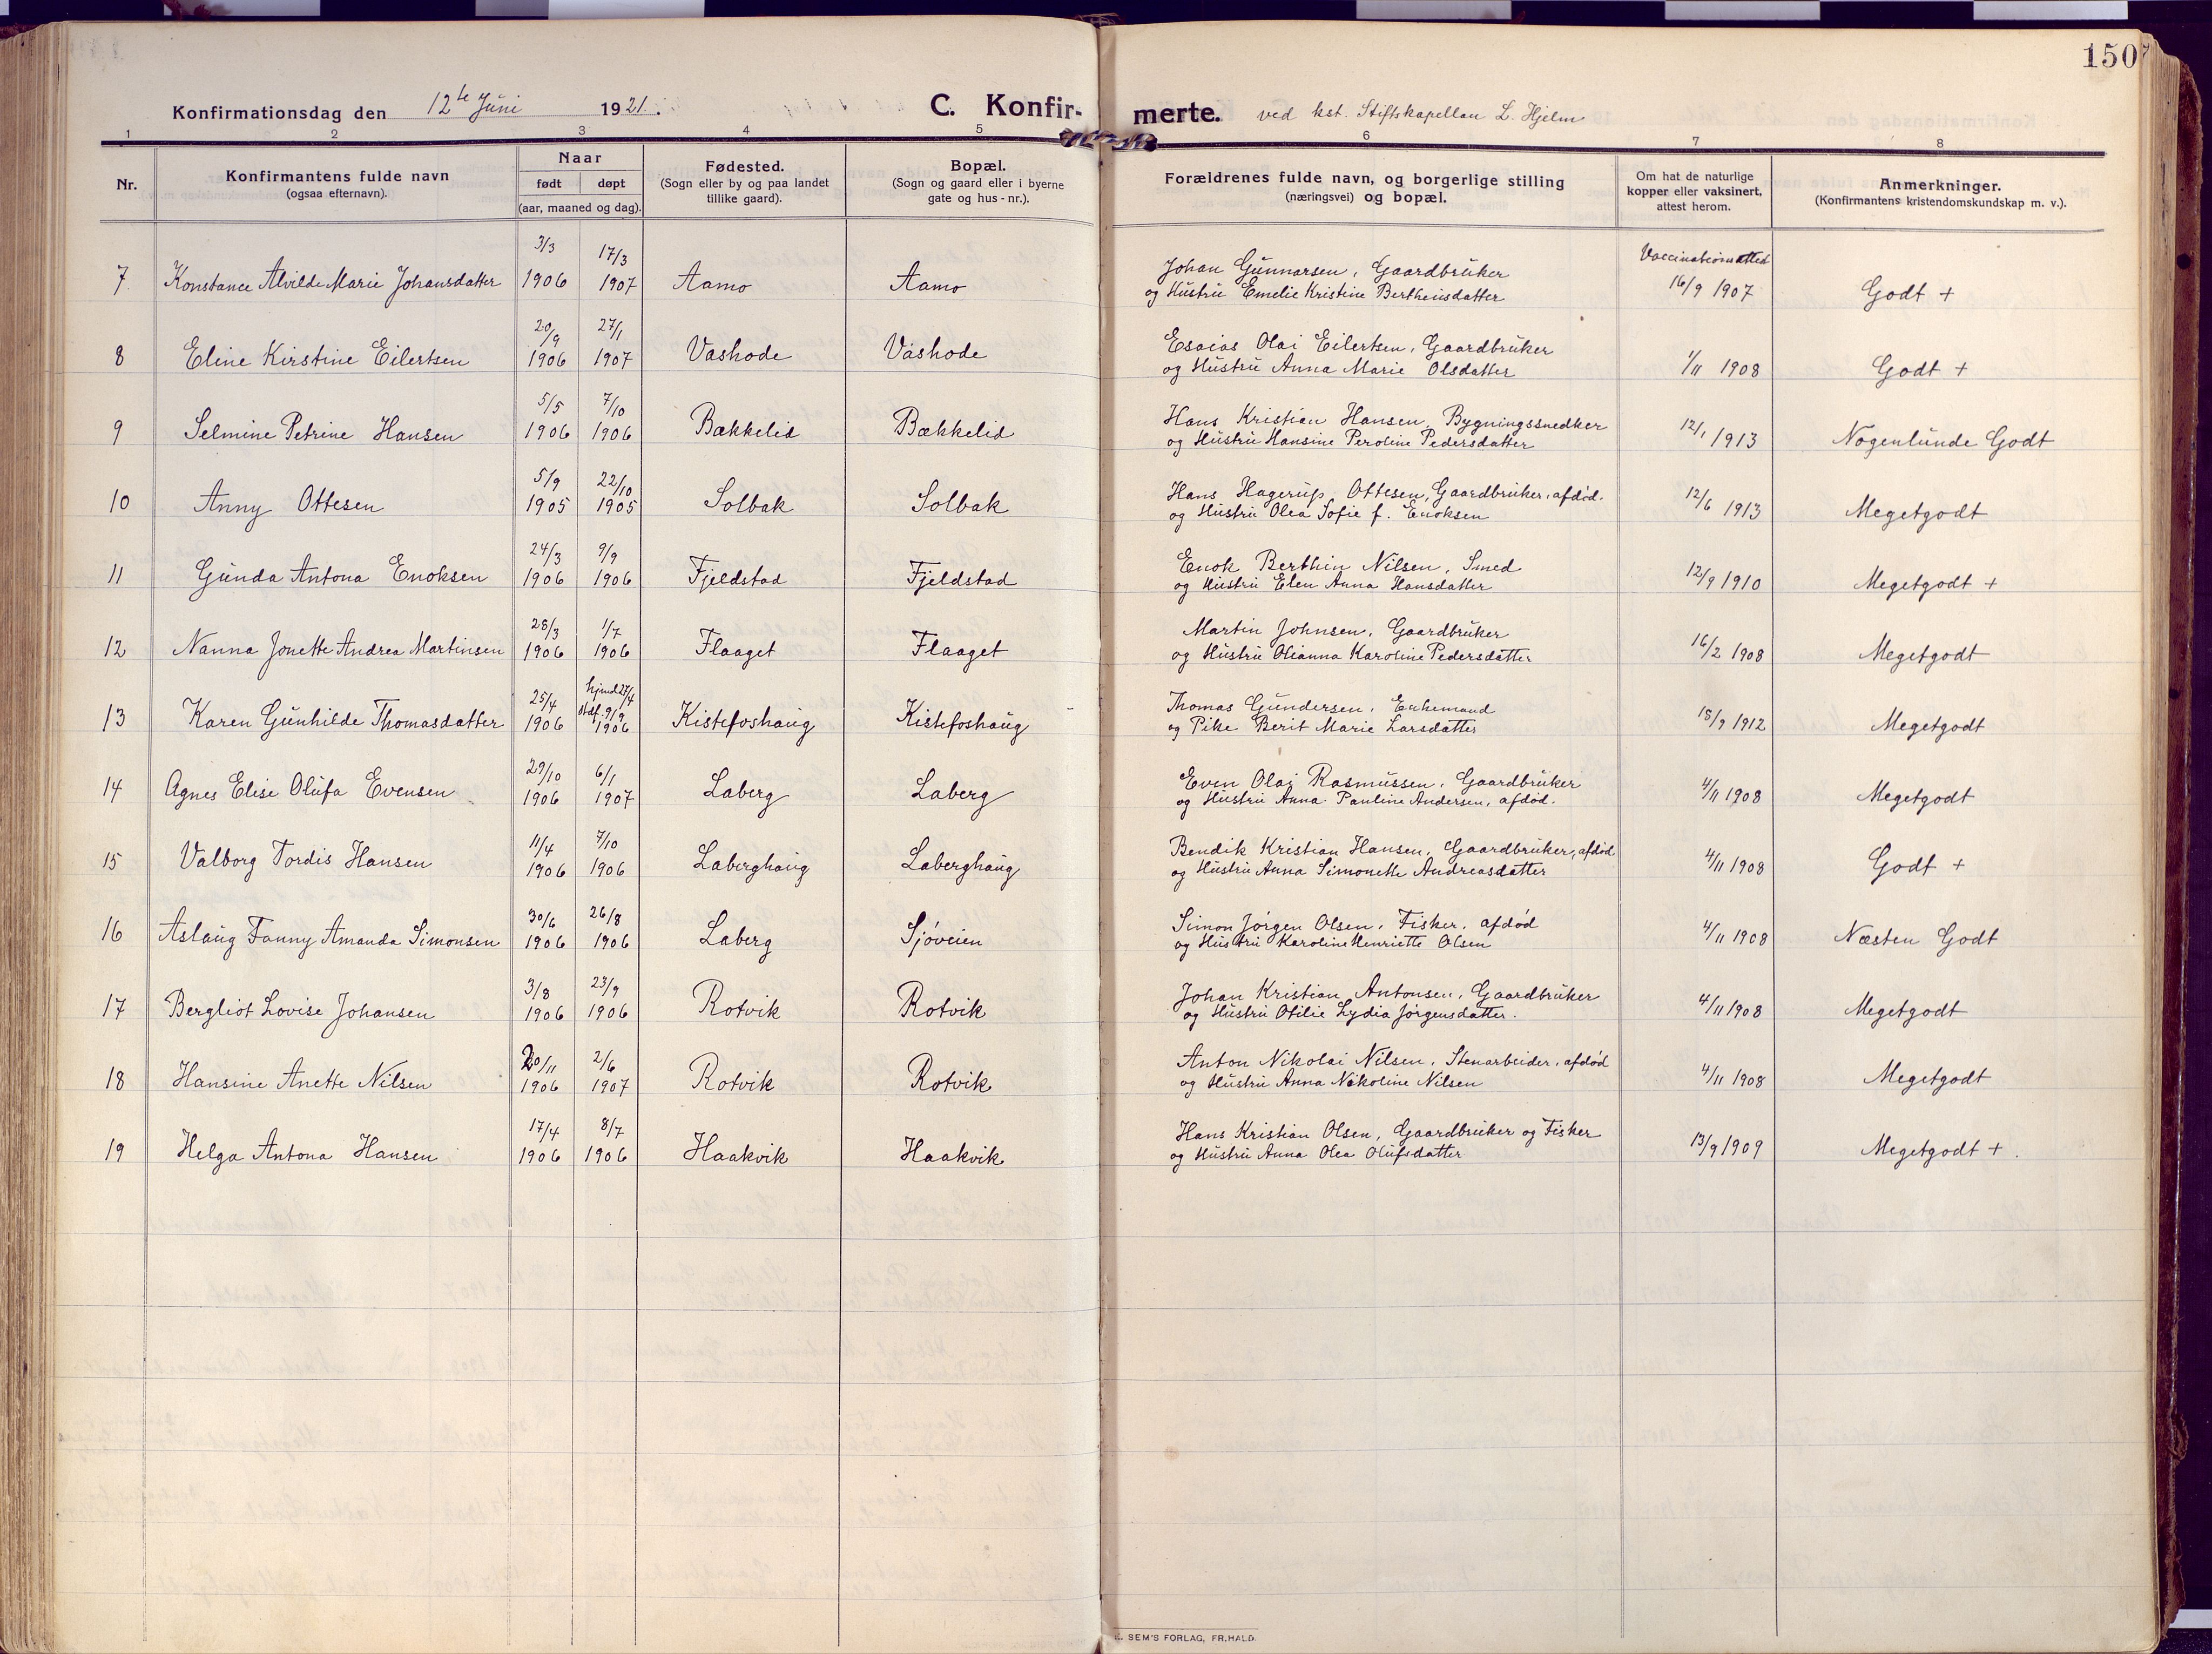 150
Konfirmationsdag den 12te Juni 1921. C. Konfirmerte. ved kst. Stiftskapellan L. Hjelm
1 2 3 4 5 6 7 8
Nr. Konfirmantens fulde navn (ogsaa efternavn). Naar født døpt (aar, maaned og dag). Fødested. (Sogn eller by og paa landet tillike gaard). Bopæl. (Sogn og gaard eller i byerne gate og hus-nr.). Forældrenes fulde navn, og borgerlige stilling (næringsvei) og bopæl. Om hat de naturlige kopper eller vaksinert, attest herom. Anmerkninger. (Konfirmantens kristendomskundskap m. v.).
7. Konstance Alvilde Marie Johansdatter 3/3 1906 17/3 1907 Aamo Aamo Johan Gunnarsen, Gaardbruker
og Hustru Emelie Kristine Bertheusdatter Vaccinationsattest 16/9 1907 Godt +
8 Eline Kirstine Eilertsen 20/9 1906 27/1 1907 Vashode Vashode Esaias Olai Eilertsen, Gaardbruker
og Hustru Anna Marie Olsdatter 1/11 1908 Godt +
9 Selmine Petrine Hansen 5/5 1906 7/10 1906 Bakkelid Bakkelid Hans Kristian Hansen, Bygningssnedker
og Hustru Hansine Peroline Pedersdatter 12/1 1913 Nogenlunde Godt
10 Anny Ottesen 5/9 1905 22/10 1905 Solbak Solbak Hans Hagerup Ottesen, Gaardbruker, afdød.
og Hustru Olea Sofie f. Enoksen 12/6 1913 Megetgodt
11 Gunda Antona Enoksen 24/3 1906 9/9 1906 Fjeldstad Fjeldstad Enok Berthin Nilsen, Smed
og Hustru Elen Anna Hansdatter 12/9 1910 Megetgodt +
12 Nanna Jonette Andrea Martinsen 28/3 1906 1/7 1906 Flaaget Flaaget Martin Johnsen, Gaardbruker
og Hustru Olianna Karoline Pedersdatter 16/2 1908 Megetgodt
13 Karen Gunhilde Thomasdatter 25/4 1906 hjmd 27/4 stdf. 9/9 1906 Kistefoshaug Kistefoshaug Thomas Gundersen, Enkemand
og Pike Berit Marie Larsdatter 18/9 1912 Megetgodt
14 Agnes Elise Olufa Evensen 29/10 1906 6/1 1907 Laberg Laberg Even Olai Rasmussen, Gaardbruker
og Hustru Anna Pauline Andersen, afdød. 4/11 1908 Megetgodt
15 Valborg Tordis Hansen 11/4 1906 7/10 1906 Laberghaug Laberghaug Bendik Kristian Hansen, Gaardbruker, afdød
og Hustru Anna Simonette Andreasdatter 4/11 1908 Godt +
16 Aslaug Fanny Amanda Simonsen 30/6 1906 26/8 1906 Laberg Sjøveien Simon Jørgen Olsen, Fisker, afdød
og Hustru Karoline Henriette Olsen 4/11 1908 Næsten Godt
17 Bergliot Lovise Johansen 3/8 1906 23/9 1906 Rotvik Rotvik Johan Kristian Antonsen, Gaardbruker
og Hustru Otilie Lydia Jørgensdatter. 4/11 1908 Megetgodt
18 Hansine Anette Nilsen 20/11 1906 2/6 1907 Rotvik Rotvik Anton Nikolai Nilsen, Stenarbeider, afdød
og Hustru Anna Nikoline Nilsen 4/11 1908 Megetgodt
19 Helga Antona Hansen 17/4 1906 8/7 1906 Haakvik Haakvik Hans Kristian Olsen, Gaardbruker og Fisker
og Hustru Anna Olea Olufsdatter 13/9 1909 Megetgodt +.
E. SEM'S FORLAG, FR.HALD.